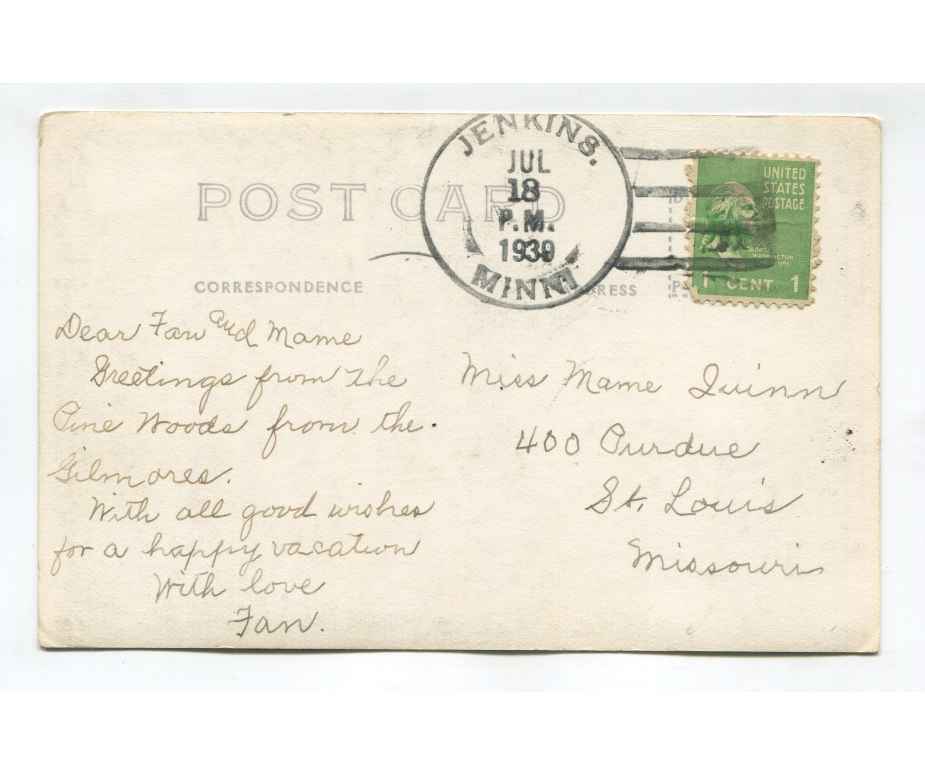 POST CARD
JENKINS.
JUL
18
P.M.
1939
MINN
UNITED
STATES
POSTAGE
WASHINGTON
1 CENT 1
CORRESPONDENCE
Dear Fan and Mame
Greetings from the
Pine Woods from the
Gilmores.
With all good wishes
for a happy vacation
With love
Fan.
Miss Mame Quinn
400 Purdue
St. Louis
Missouri